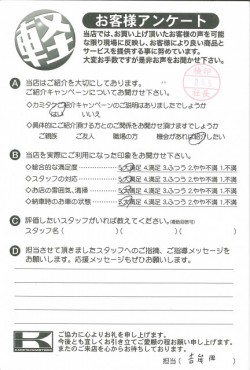 軽
お客様アンケート
当店では、お買い上げ頂いたお客様の声を可能
な限り現場に反映し、お客様により良い商品と
サービスを提供する事に努めています。
大変お手数ですが是非お声をお聞かせ下さい。
A 当店はご紹介を大切にしております。
ご紹介キャンペーンについてお聞かせ下さい。
◇カミタケご紹介キャンペーンのご説明はありましたでしょうか
はい いいえ
◇具体的にご紹介頂ける方とのご関係をお聞かせ頂けますでしょうか
ご親族 ご友人 職場の方 機会があれば紹介したい
B 当店を実際にご利用になった印象をお聞かせ下さい。
◇総合的な満足度 5.大満足 4.満足 3.ふつう 2.やや不満 1.不満
◇スタッフの対応 5.大満足 4.満足 3.ふつう 2.やや不満 1.不満
◇お店の雰囲気、清掃 5.大満足 4.満足 3.ふつう 2.やや不満 1.不満
◇納車時のお車の状態 5.大満足 4.満足 3.ふつう 2.やや不満 1.不満
C 評価したいスタッフがいれば教えてください。(複数回答可)
スタッフ名( )( )( )
D 担当させて頂きましたスタッフへのご指摘、ご指導メッセージを
お願いします。応援メッセージもぜひお願いします。
K
ご協力に心よりお礼を申し上げます。
今後とも宜しくお引き立てご愛顧の程お願い申し上げます。
またのご来店を心からお待ちしております。
担当( )